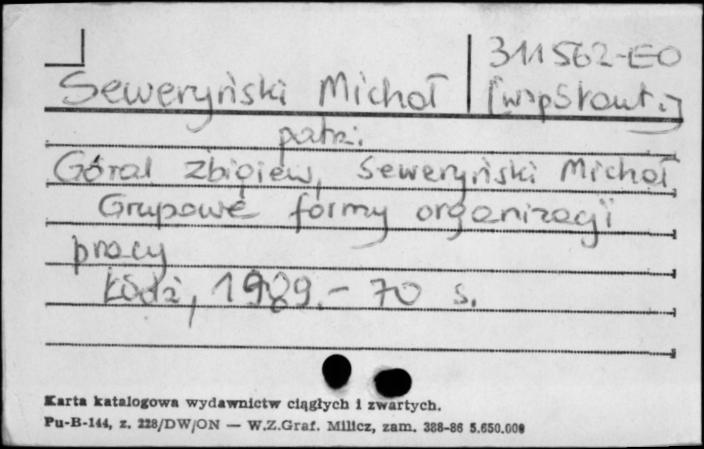 311562-EO
Seweryński Michał [współaut.]
patrz:
Góral Zbigiew, Seweryński Michał
Grupowe formy organizacji
pracy
Łódź, 1989.- 70 s.
Karta katalogowa wydawnictw ciągłych i zwartych.
Pu-B-144, z. 228/DW/ON — W.Z.Graf. Milicz, zam. 388-86 5.650.000